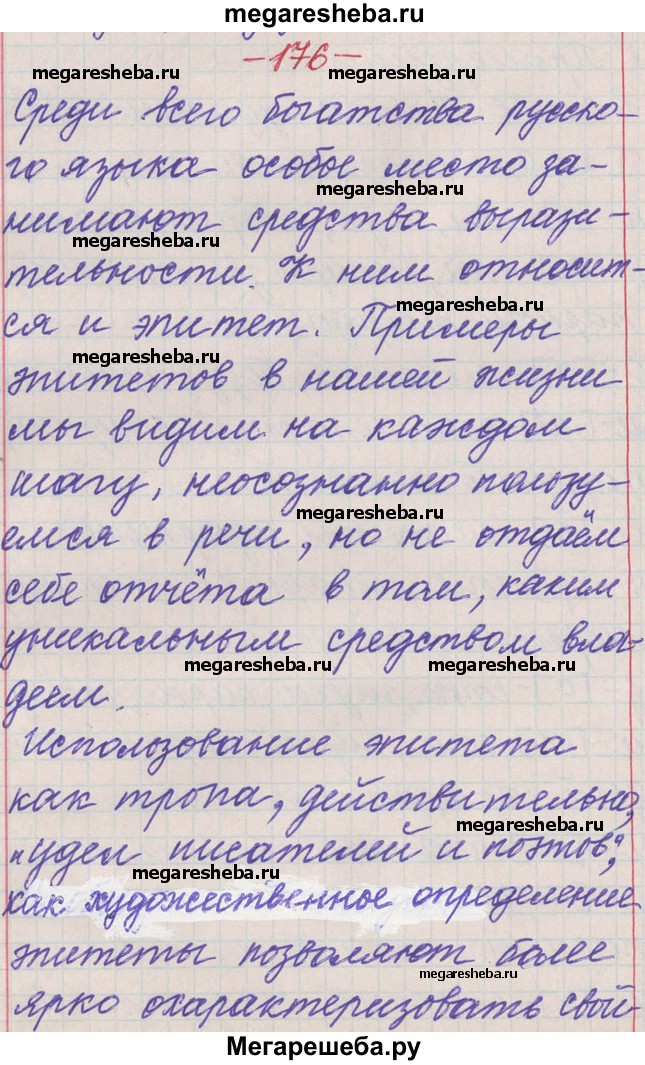 megaresheba.ru
-176-
megaresheba.ru
megaresheba.ru
Среди всего богатства русско-
го языка особое место за-
megaresheba.ru
нимают средства вырази-
megaresheba.ru
тельности. К ним относит-
megaresheba.ru
ся и эпитет. Примеры
megaresheba.ru
эпитетов в нашей жизни
мы видим на каждом
шагу, неосознанно пользу-
megaresheba.ru
емся в речи, но не отдаём
себе отчёта в том, каким
уникальным средством вла-
megaresheba.ru
megaresheba.ru
деем.
Использование эпитета
как тропа, действительно,
megaresheba.ru
"удел писателей и поэтов",
megaresheba.ru
как художественное определение
эпитеты позволяют более
megaresheba.ru
ярко охарактеризовать свой-
Мегарешеба.ру